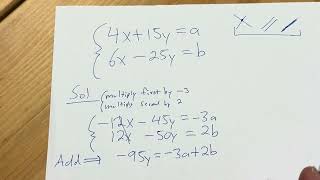 4x+15y=a
6x-25y=b
Sol
multiply first by -3
multiply second by 2
-12x-45y=-3a
12x-50y=2b
Add⟹ -95y=-3a+2b